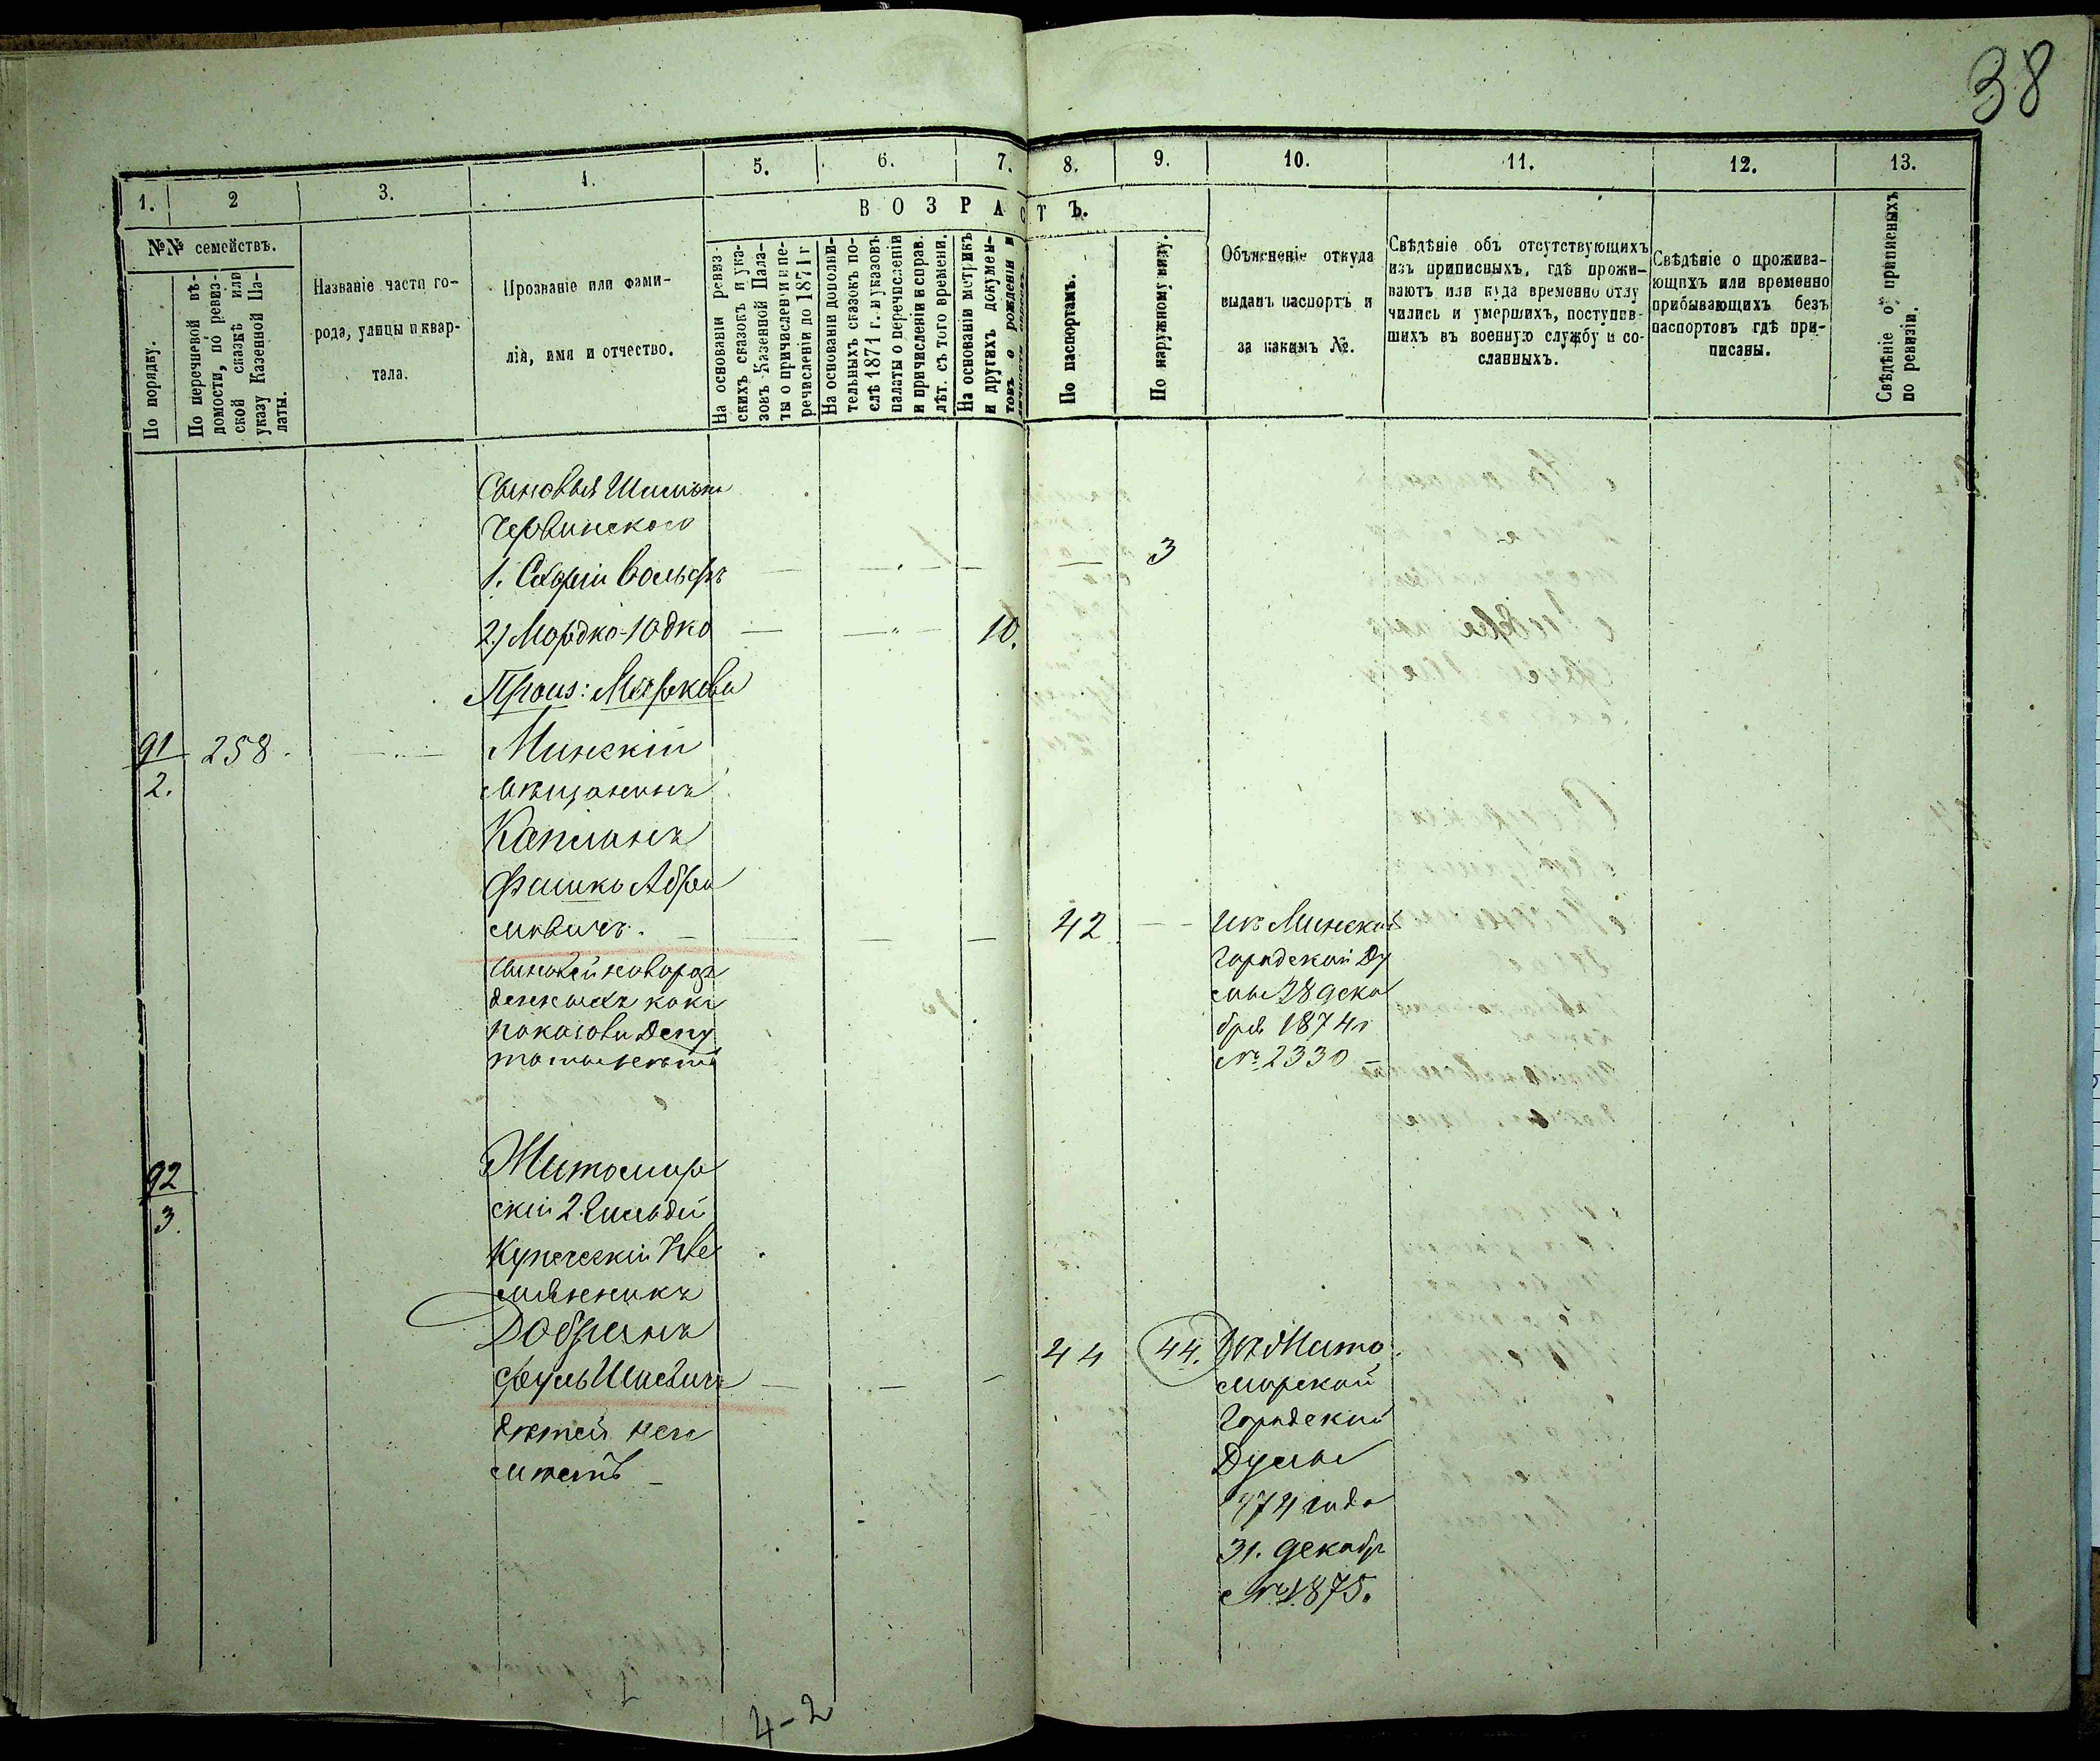 38
1. 2 3. 4. 5. 6. 7. 8. 9. 10. 11. 12. 13.
№№ семействъ.
По порядку.
По перечневой вѣ-
домости, по ревиз-
ской сказкѣ или
указу Казенной Па-
латы.
Названіе части го-
рода, улицы и квар-
тала.
Прозваніе или фами-
лія, имя и отчество.
ВОЗРАСТЪ.
На основаніи ревиз-
скихъ сказокъ и ука-
зовъ Казенной Пала-
ты о причисленіи и пе-
речисленіи до 1871 г
На основаніи дополни-
тельныхъ сказокъ по-
слѣ 1871 г. и указовъ
палаты о перечисленіи
и причисленіи и справ.
лѣт. съ того времени.
На основаніи метрикъ
и другихъ докумен-
товъ о рожденіи и
По паспортамъ.
По наружному виду.
Объясненіе откуда
выданъ паспортъ и
за какимъ №.
Свѣдѣніе объ отсутствующихъ
изъ приписныхъ, гдѣ прожи-
ваютъ или куда временно отлу
чились и умершихъ, поступив-
шихъ въ военную службу и со-
сланныхъ.
Свѣдѣніе о прожива-
ющихъ или временно
прибывающихъ безъ
паспортовъ гдѣ при-
писаны.
Свѣдѣніе о приписныхъ
по ревизіи.
Сыновья Шимона
Червинского
1. Вольфъ — — — — 3
2) Мордко-Юдко — — 10.
91/2. 258. — Минскій
мѣщанинъ
Капланъ
Фишко Абра
мовичъ. — — — 42 — Изъ Минской
Городской Ду
мы 28 дека
бря 1874 г
№ 2330 —
сыновей новорож
денныхъ какъ
показови Депу
92/3. Житомир
скій 2. Гильдіи
Купеческій Пле
мянникъ
Добринъ
— — — 44 44. Изъ Жито
мирской
Городской
Думы
874 года
31. декабр
№ 1875.
дѣтей не
имѣетъ —
4-2